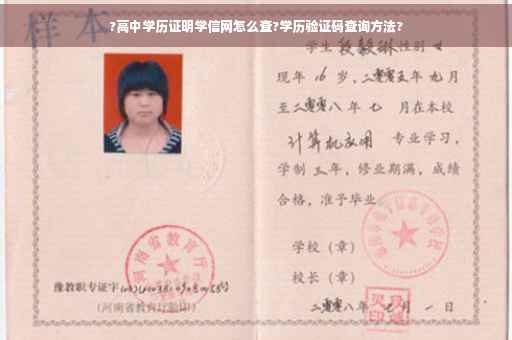 ?高中学历证明学信网怎么查?学历验证码查询方法?
样本
学生段毅琳性别女
现年16岁,二零零五年九月
至二零零八年七 月在本校
计算机应用 专业学习,
学制三年,修业期满,成绩
合格,准予毕业
学校(章)
校长(章)
二零零八年七月一日
河南省教育厅
豫教职专证字
(河南省教育厅验印)